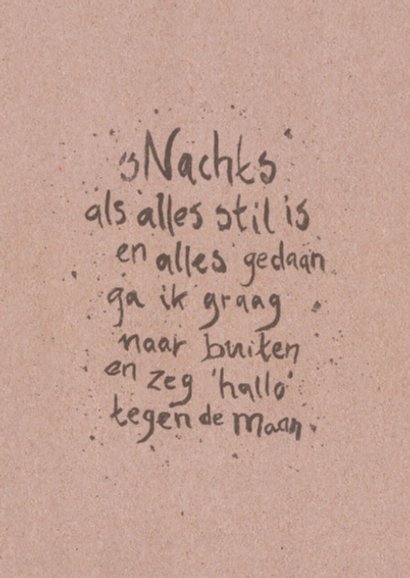 'sNachts
als alles stil is
en alles gedaan
ga ik graag
naar buiten
en zeg 'hallo'
tegen de maan